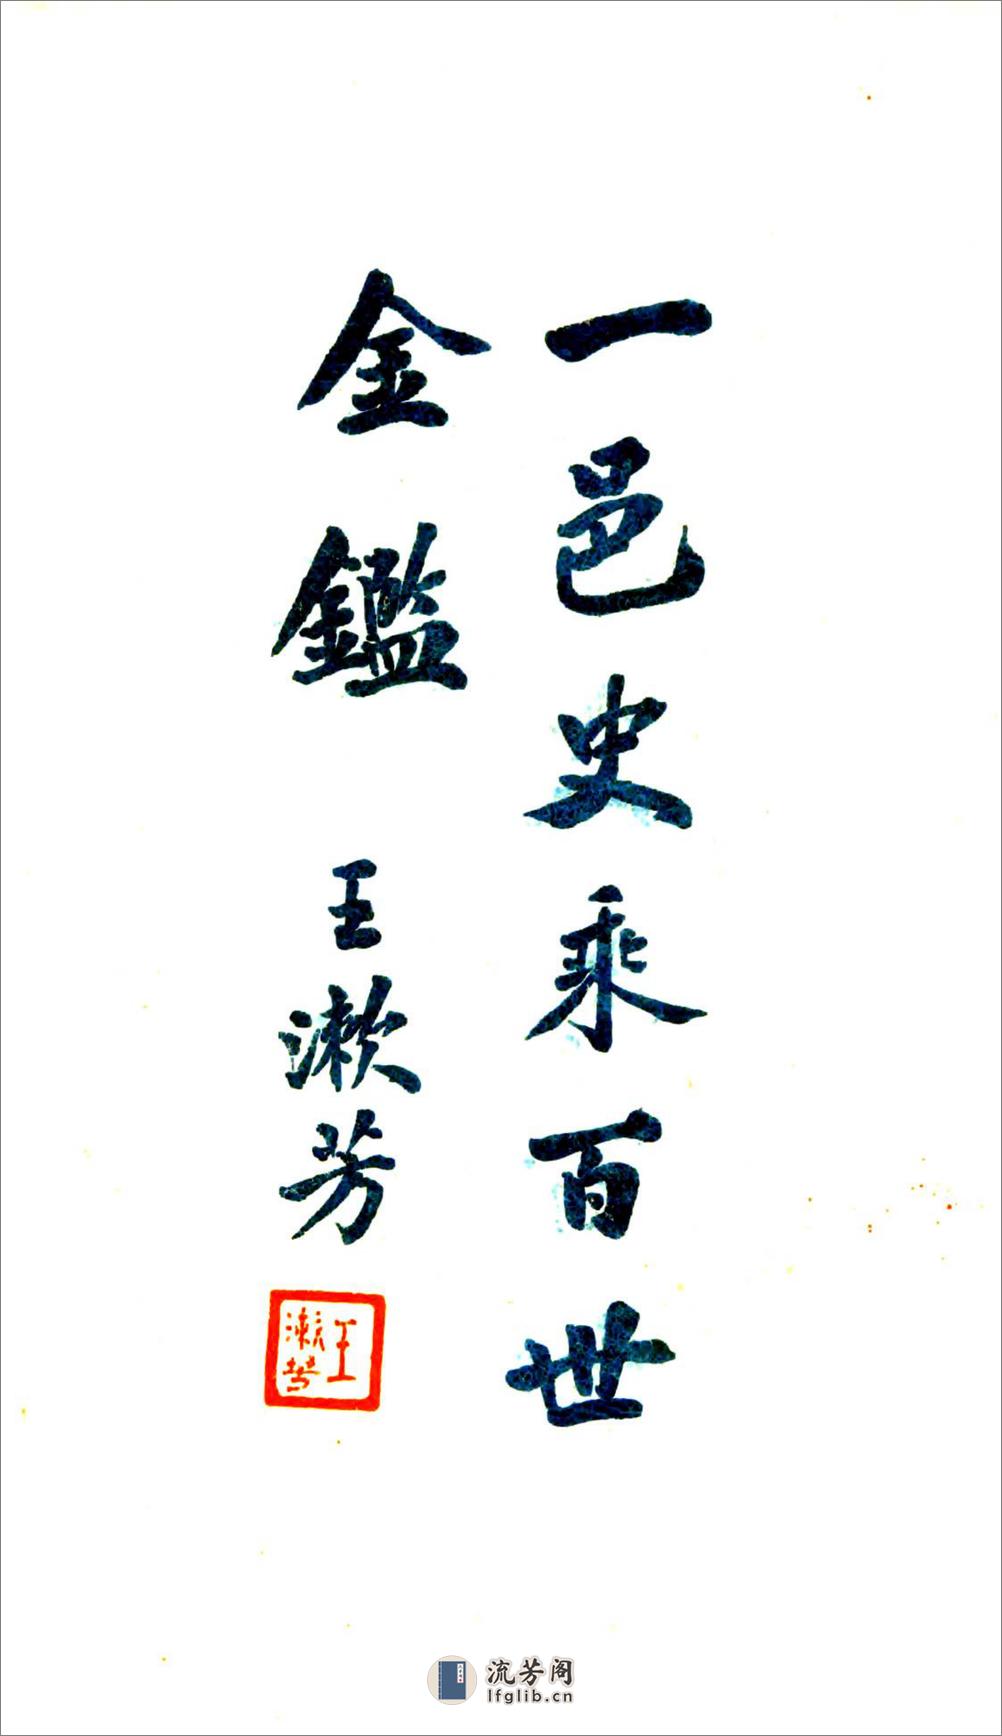 一邑史乘百世
金鑑
王漱芳
王漱芳
流芳阁
lfglib.cn